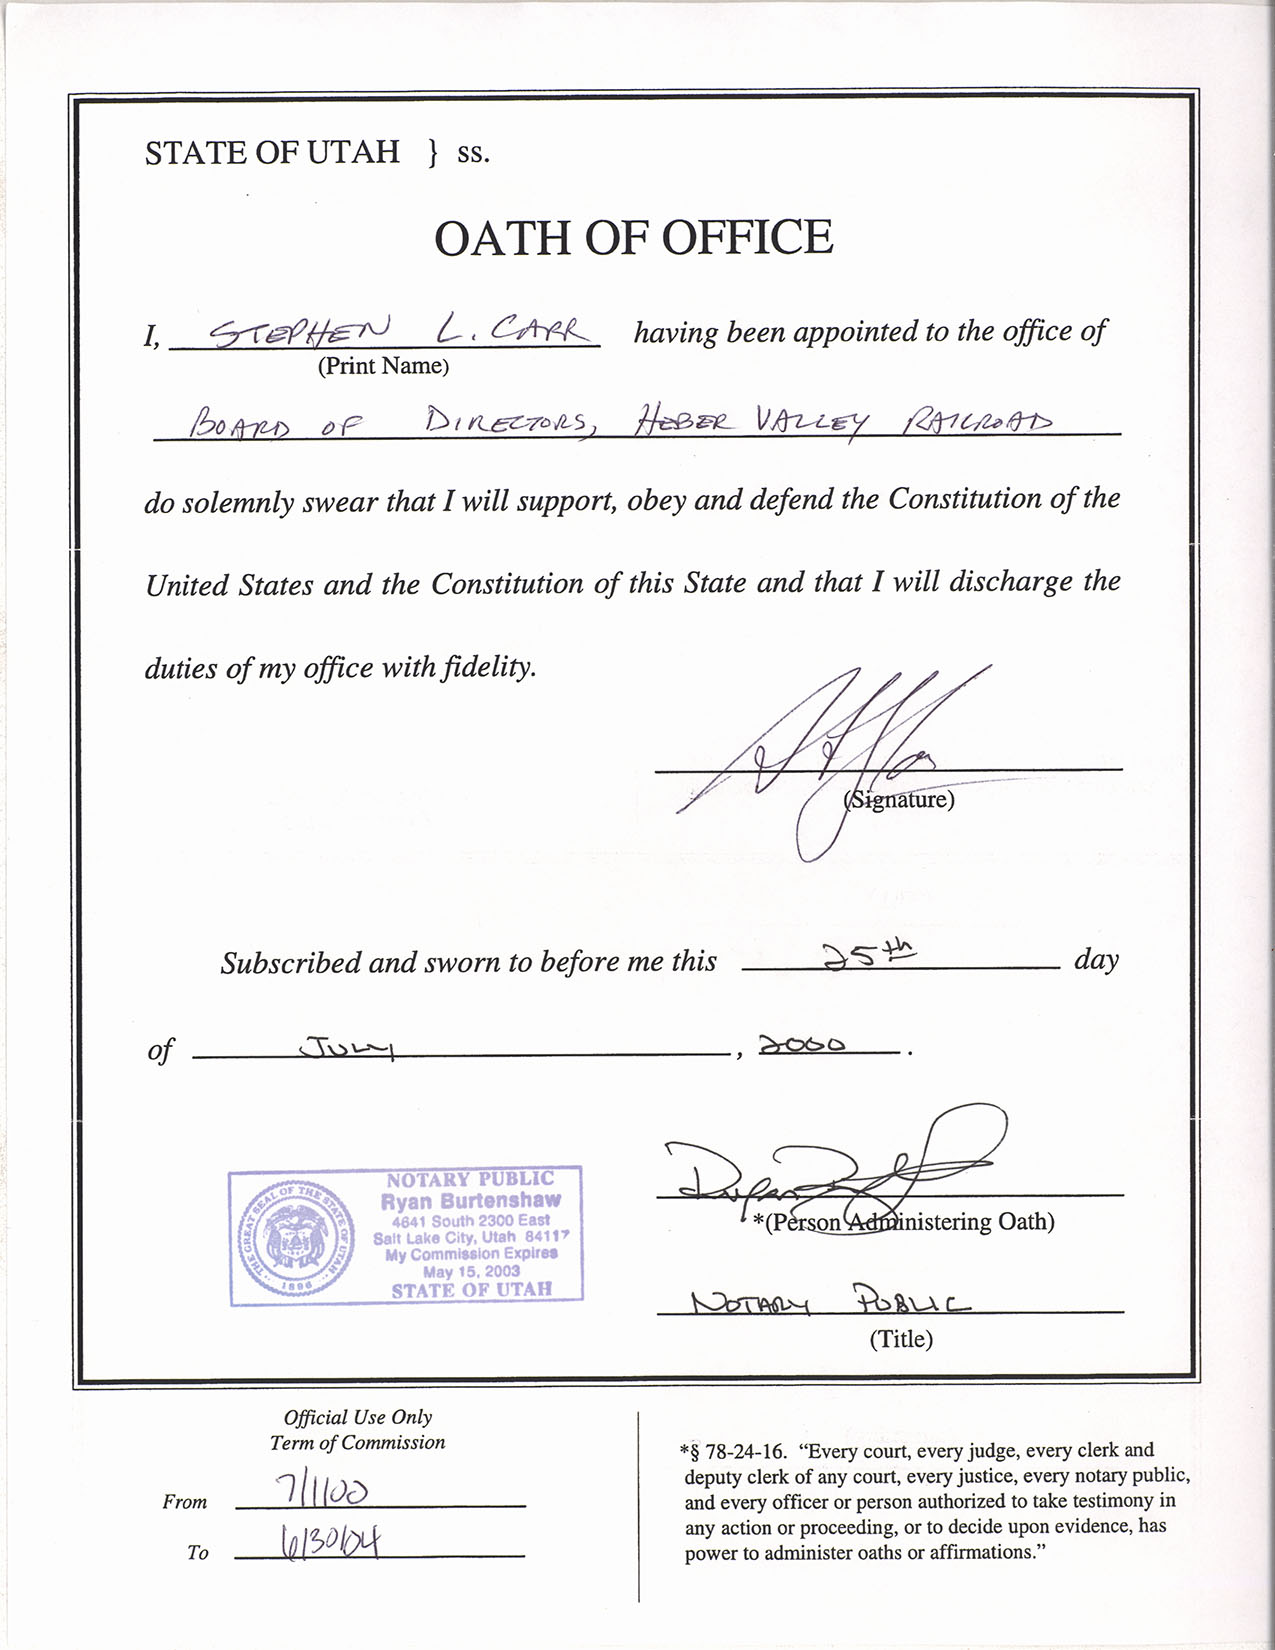 STATE OF UTAH } ss.
OATH OF OFFICE
I, STEPHEN L. CARR having been appointed to the office of
(Print Name)
BOARD OF DIRECTORS, HEBER VALLEY RAILROAD
do solemnly swear that I will support, obey and defend the Constitution of the
United States and the Constitution of this State and that I will discharge the
duties of my office with fidelity.
(Signature)
Subscribed and sworn to before me this 25th day
of JULY, 2000.
*(Person Administering Oath)
NOTARY PUBLIC
(Title)
THE GREAT SEAL OF THE STATE OF UTAH
1896
NOTARY PUBLIC
Ryan Burtenshaw
4641 South 2300 East
Salt Lake City, Utah 84117
My Commission Expires
May 15, 2003
STATE OF UTAH
Official Use Only
Term of Commission
From 7/1/00
To 6/30/04
*§ 78-24-16. “Every court, every judge, every clerk and
deputy clerk of any court, every justice, every notary public,
and every officer or person authorized to take testimony in
any action or proceeding, or to decide upon evidence, has
power to administer oaths or affirmations.”